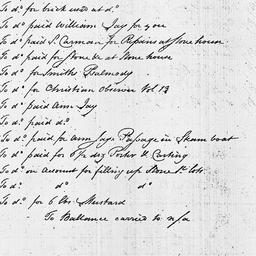 To do for brick used at do
To do paid William Jay for you
To do paid P. Carman for Repairs at Stone house
To do paid for stone &c at Stone house
To do for Smiths Psalmody
To do for Christian Observer Vol. 13
To do paid Ann Jay
To do paid do
To do paid for Ann Jays Passage in Steam boat
To do paid for 6 1/2 doz Porter & Carting
To do on account for filling up Stone St. lots
To do do do
To do for 6 lbs. Mustard
To Ballance carried to n/a